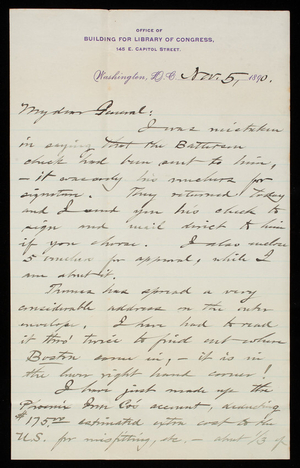 OFFICE OF
BUILDING FOR LIBRARY OF CONGRESS,
145 E. CAPITOL STREET.
Washington, D.C. Nov. 5, 1890.
My dear General:
I was mistaken
in saying that the Batterson
check had been sent to him,
– it was only his vouchers for
signature. They returned today
and I send you his check to
sign and mail direct to him
if you choose. I also enclose
5 vouchers for approval, while I
am about it.
Thomas has spread a very
considerable address on the outer
envelope. I have had to read
it thro' twice to find out where
Boston came in, – it is in
the lower right hand corner!
I have just made up the
Phoenix Iron Co's account, deducting
175.00 estimated extra cost to the
U.S. for misfitting, etc. – about 1/3 of